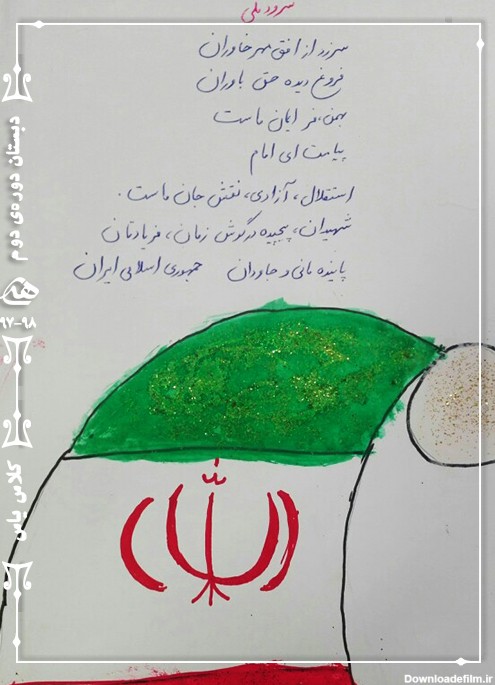 سرود ملی
سرزد از افق مهر خاوران
فروغ دیده حق باوران
بهمن، فر ایمان ماست
پیامت ای امام
استقلال، آزادی، نقش جان ماست.
شهیدان، پیچیده در گوش زمان، فریادتان
پاینده مانی و جاودان جمهوری اسلامی ایران
دبستان دوره‌ی دوم
۹۷-۹۸
کلاس یاس
Downloadefilm.ir